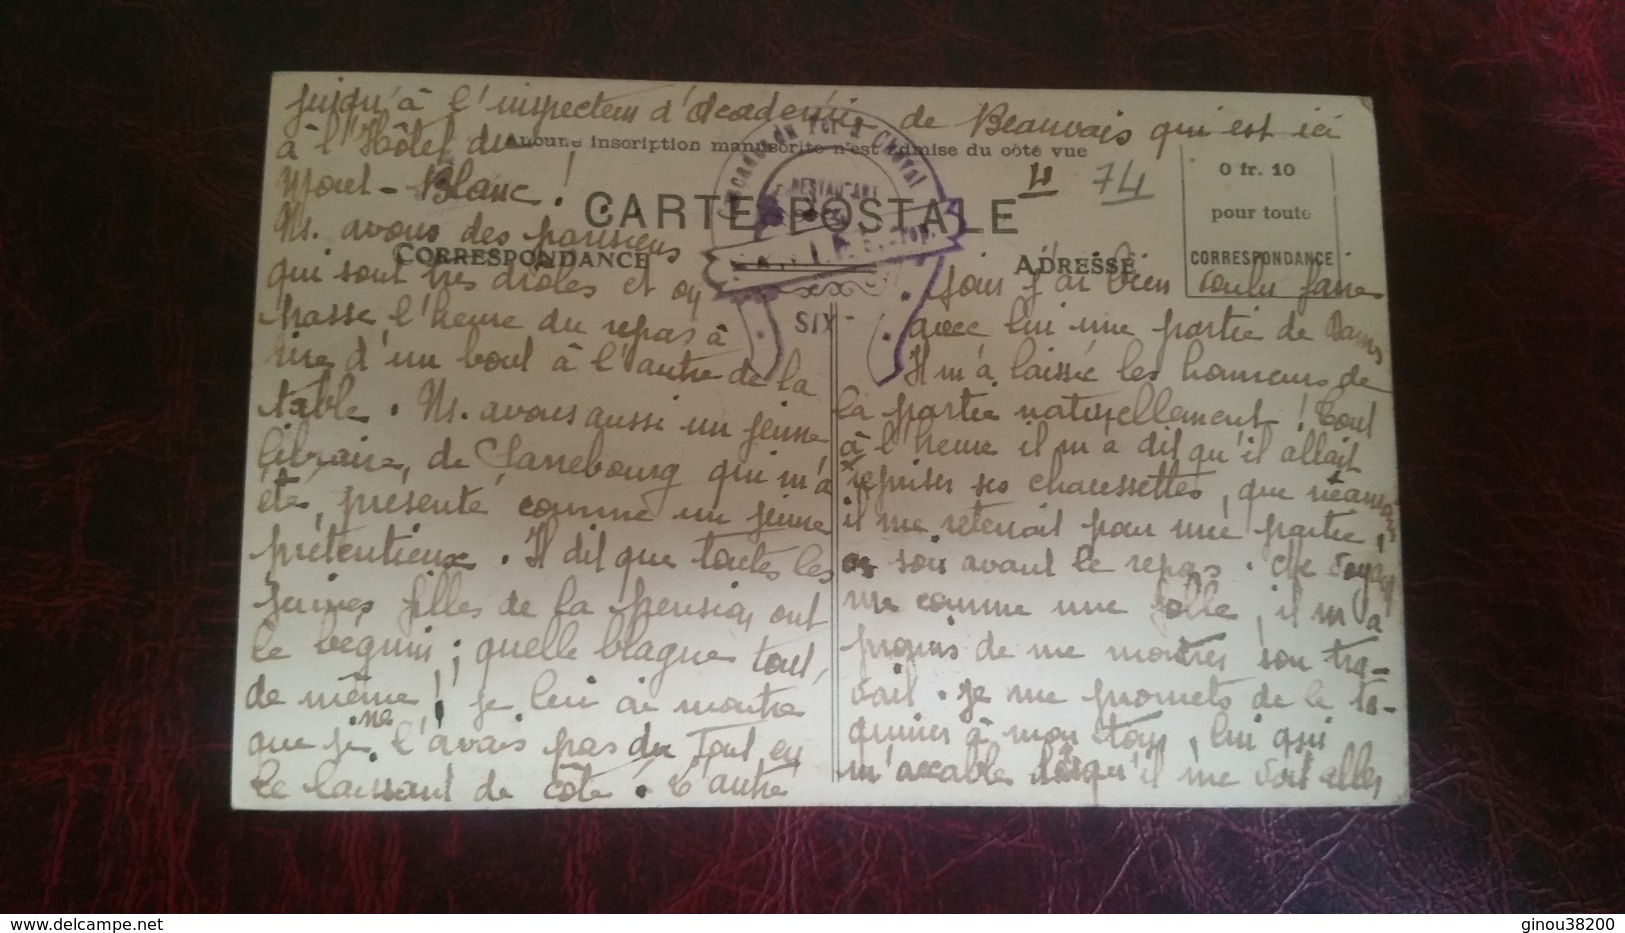 jusqu'à l'inspecteur d'Académie de Beauvais qui est ici
à l'Hôtel du
Mont-Blanc !
Aucune inscription manuscrite n'est admise du côté vue
CARTE POSTALE
CORRESPONDANCE
ADRESSE
4 74
0 fr. 10
pour toute
CORRESPONDANCE
Cascade du Fer à Cheval
RESTAURANT
SIX-
Ns. avons des parisiens
qui sont très drôles et on
passe l'heure du repas à
rire d'un bout à l'autre de la
table. Ns. avons aussi un jeune
libraire, de Sarrebourg qui m'a
été, présenté comme un jeune
prétentieux. Il dit que toutes les
jeunes filles de la pension ont
le béguin ; quelle blague tout,
de même ! je lui ai montré
que je ne l'avais pas du tout en
le laissant de côté. L'autre
jour j'ai bien voulu faire
avec lui une partie de Dames
Il m'a laissée les honneurs de
la partie naturellement ! Tout
à l'heure il m'a dit qu'il allait
repriser ses chaussettes, que néanmoins
il me retenait pour une partie,
ce soir avant le repas. Me voyant
rire comme une folle, il m'a
promis de me montrer son tra-
vail. Je me promets de le ta-
quiner à mon tour, lui qui
m'accable lorsqu'il me voit aller
ginou38200
www.delcampe.net